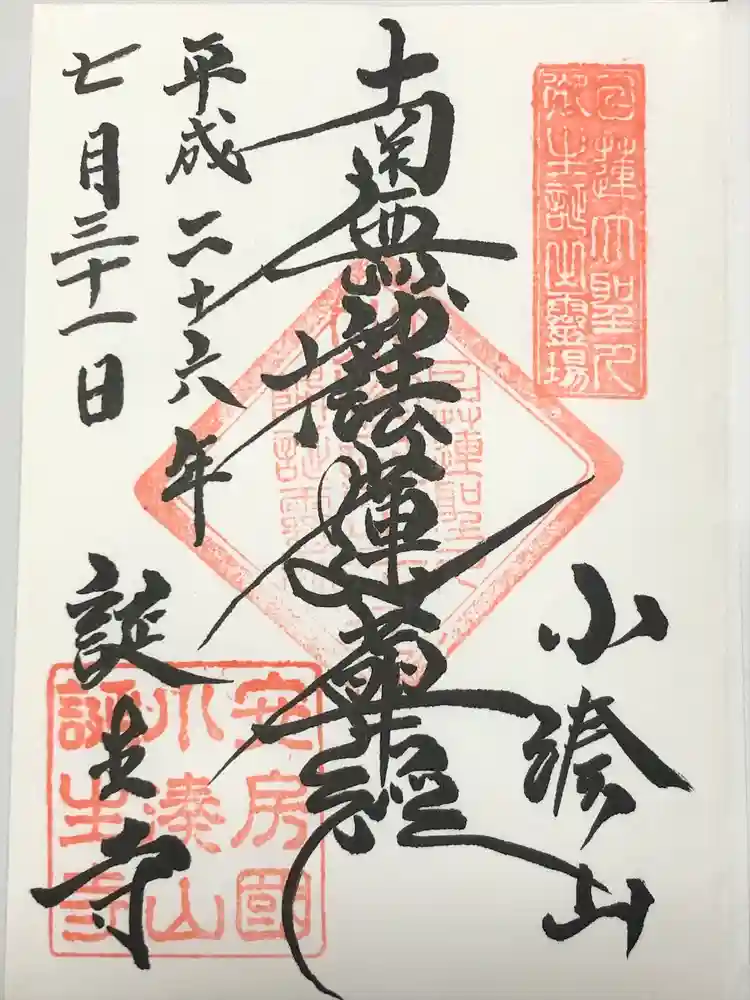 日蓮大聖人
御生誕之靈場
小湊山
南無妙法蓮華經
平成二十六年
七月三十一日
誕生寺
安房國
小湊山
誕生寺